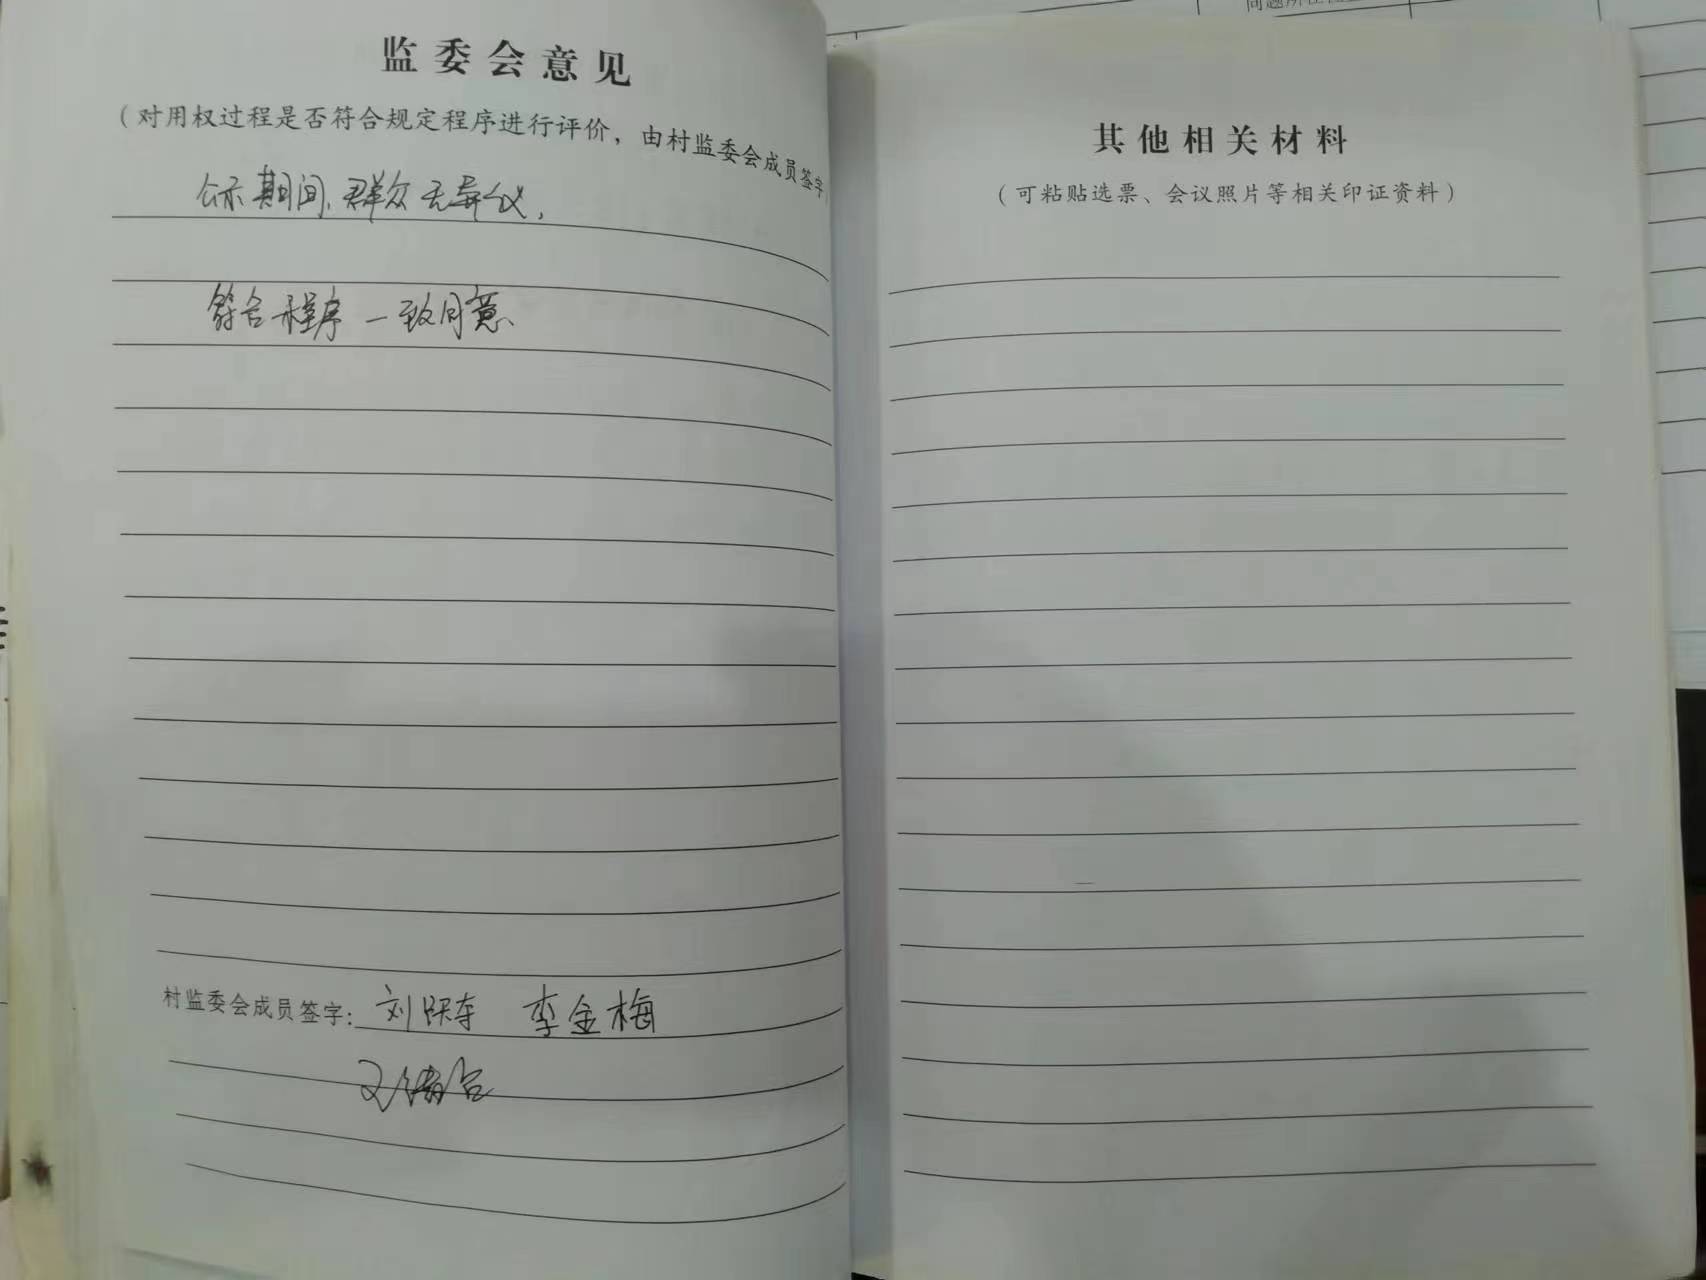 监委会意见
（对用权过程是否符合规定程序进行评价，由村监委会成员签字）
公示期间，群众无异议，
符合程序一致同意、
村监委会成员签字：刘跃东 李金梅
其他相关材料
（可粘贴选票、会议照片等相关印证资料）